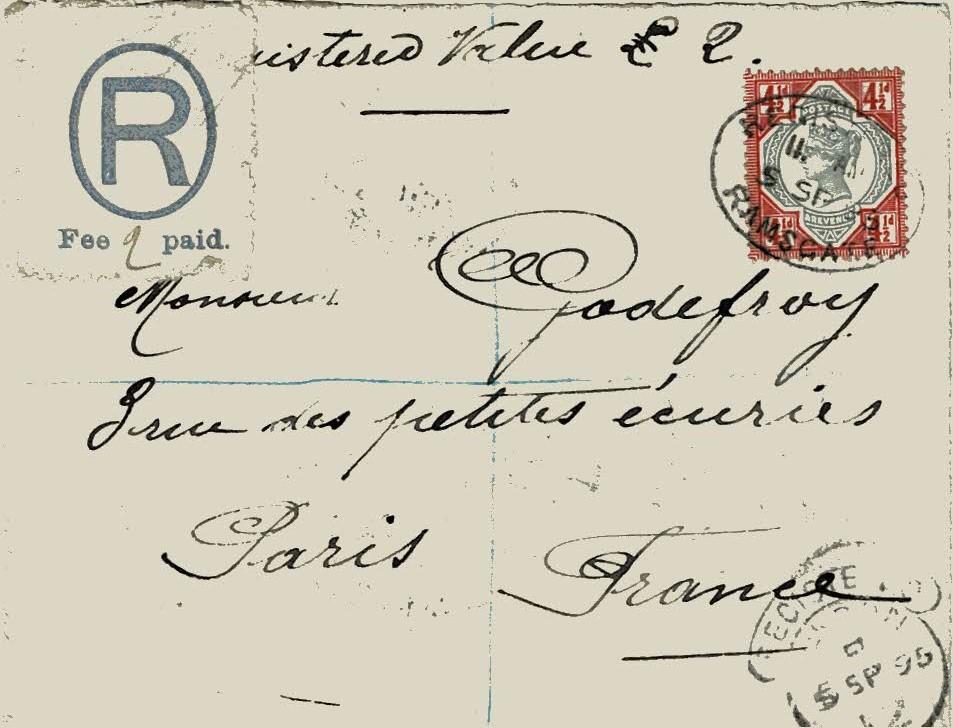 Registered Value £ 2.
R
Fee 2 paid.
4½d 4½d
POSTAGE
REVENUE
4½d 4½d
5 SP 95
RAMSGATE
Monsieur Godefroy
3 rue des petites écuries
Paris France
5 SP 95